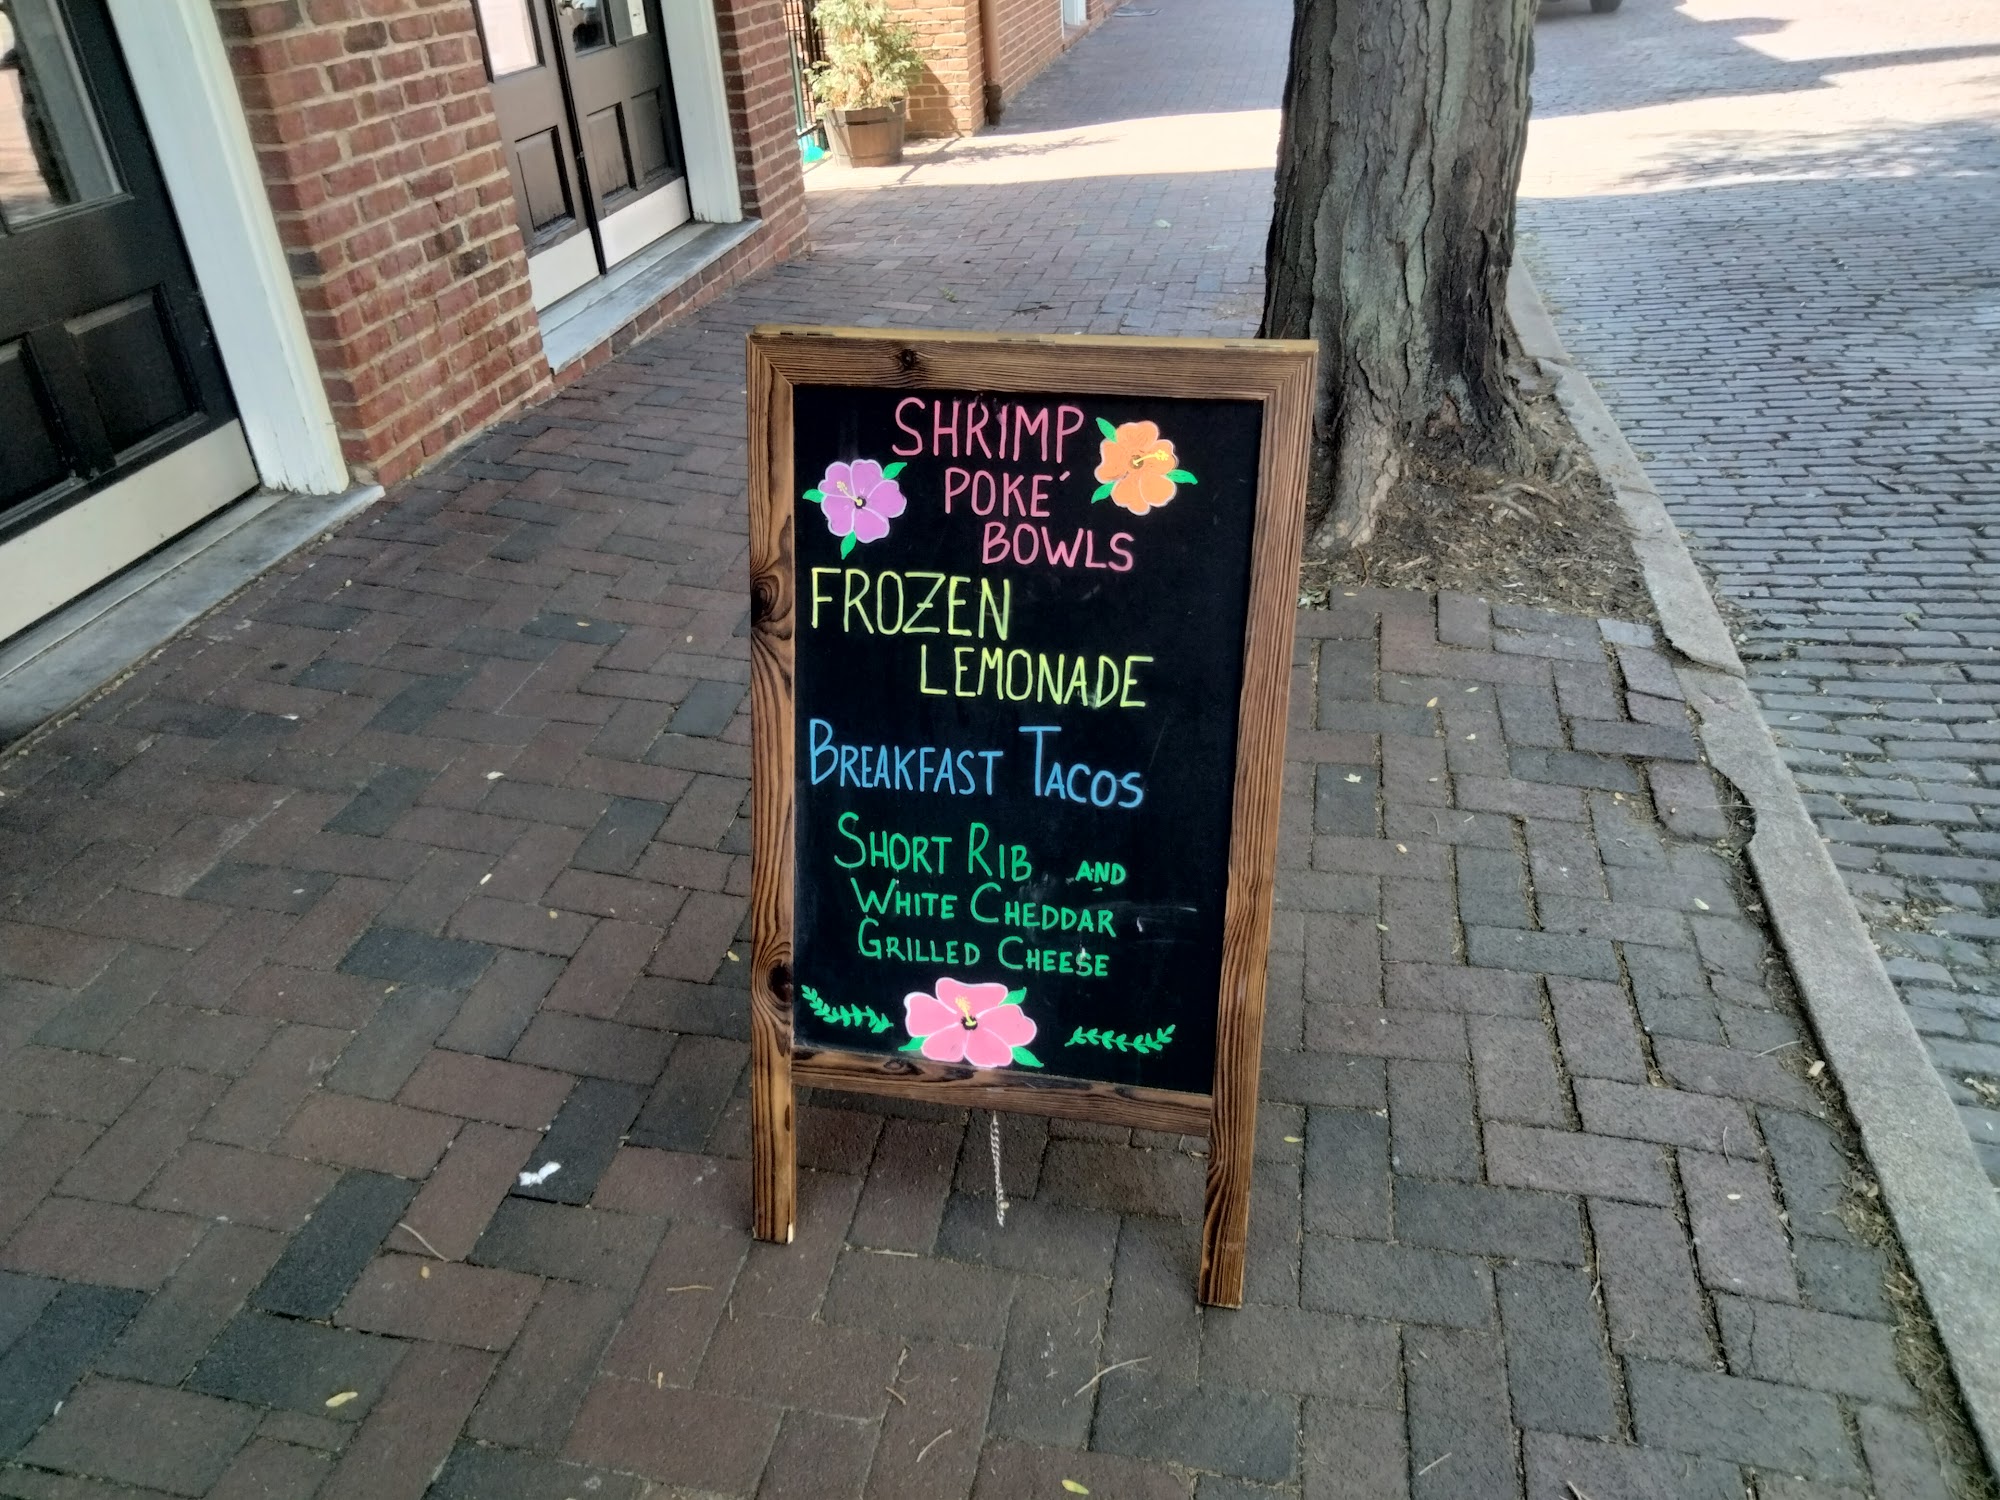 SHRIMP
POKÉ
BOWLS
FROZEN
LEMONADE
BREAKFAST TACOS
SHORT RIB AND
WHITE CHEDDAR
GRILLED CHEESE